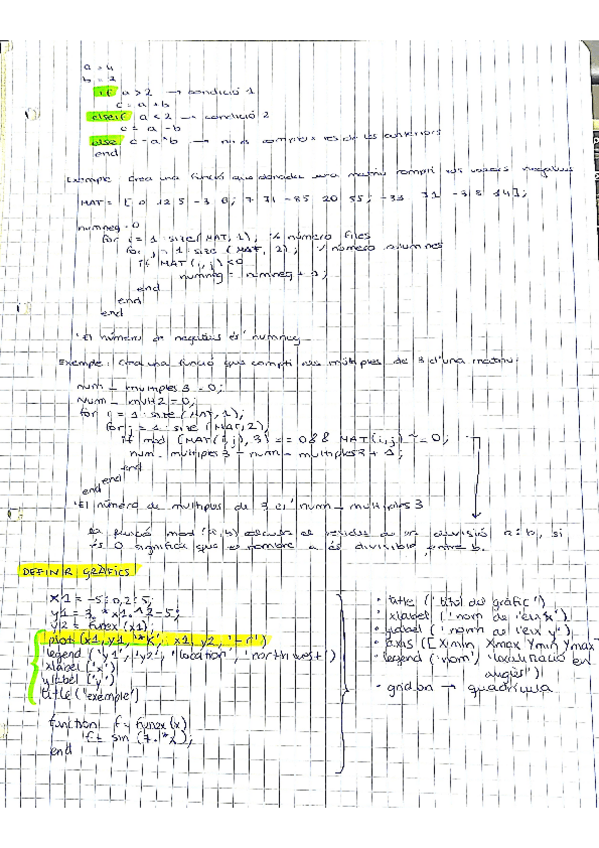 a = 4
b = 2
if a > 2 → condició 1
c = a + b
elseif a < 2 → condició 2
c = a - b
else c = a*b → no es compleix res de les anteriors
end
Exemple: Crea una funció que donada una matriu compti els valors negatius
MAT = [ 0 12 5 -3 6; 7 31 -85 20 55; -31 31 -318 14];
numneg = 0
for i = 1:size(MAT, 1); % número files
for j = 1:size(MAT, 2); % número columnes
if MAT(i,j) < 0
numneg = numneg + 1;
end
end
end
'El número de negatius és' numneg
Exemple: Crea una funció que compti els múltiples de 3 d'una matriu.
num_multiples3 = 0;
num_mult2 = 0;
for i = 1:size(MAT, 1);
for j = 1:size(MAT, 2);
if mod (MAT(i,j), 3) == 0 && MAT(i,j) ~= 0;
num_multiples3 = num_multiples3 + 1;
end
end
end
'El número de multiples de 3 és' num_multiples3
La funció mod (a,b) calcula el residu de la divisió a:b, si
és 0 significa que el nombre a és divisible entre b.
DEFINIR GRÀFICS
x1 = -5:0,2:5;
y1 = 3.*x1.^2-5;
y2 = funex(x1)
plot(x1, y1, '*k', x1, y2, '-r')
legend('y1', 'y2', 'location', 'northwest')
xlabel('x')
ylabel('y')
title('exemple')
function f = funex(x)
f = sin(7.*x);
end
• title ('títol del gràfic')
• xlabel ('nom de l'eix x')
• ylabel ('nom de l'eix y')
• axis ([Xmin Xmax Ymin Ymax
• legend ('nom') 'localització en
anglès')
• grid on → quadrícula